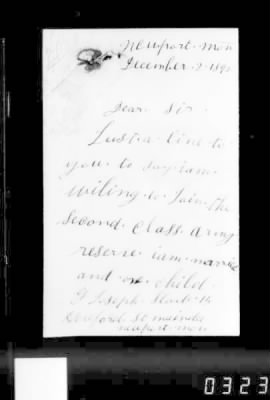 Newport. Mon
December. 2. 189
Dear. Sir.
Just. a. line. to
you. to. say. iam.
wiling. to. Join. the
second. class. army
reserve. iam. married
and. one. child.
Joseph.
St
newport. mon
0323